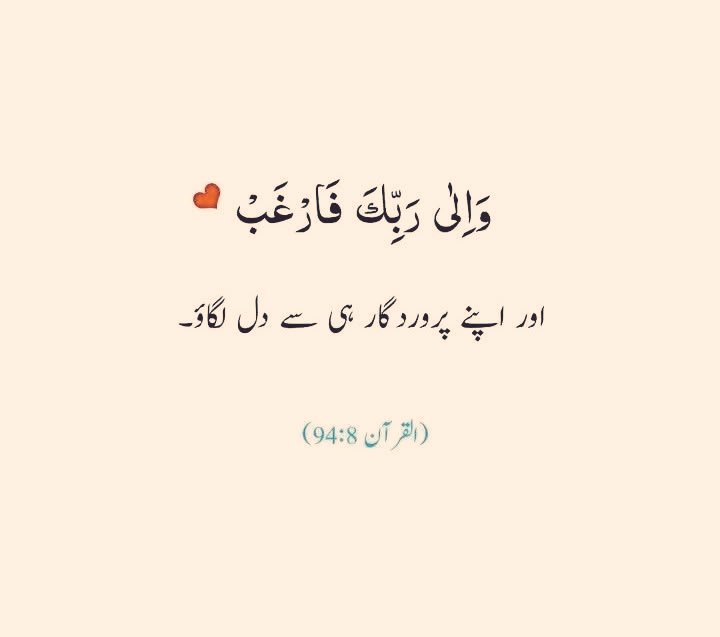 وَاِلٰى رَبِّكَ فَارْغَبْ
اور اپنے پروردگار ہی سے دل لگاؤ۔
(القرآن 94:8)